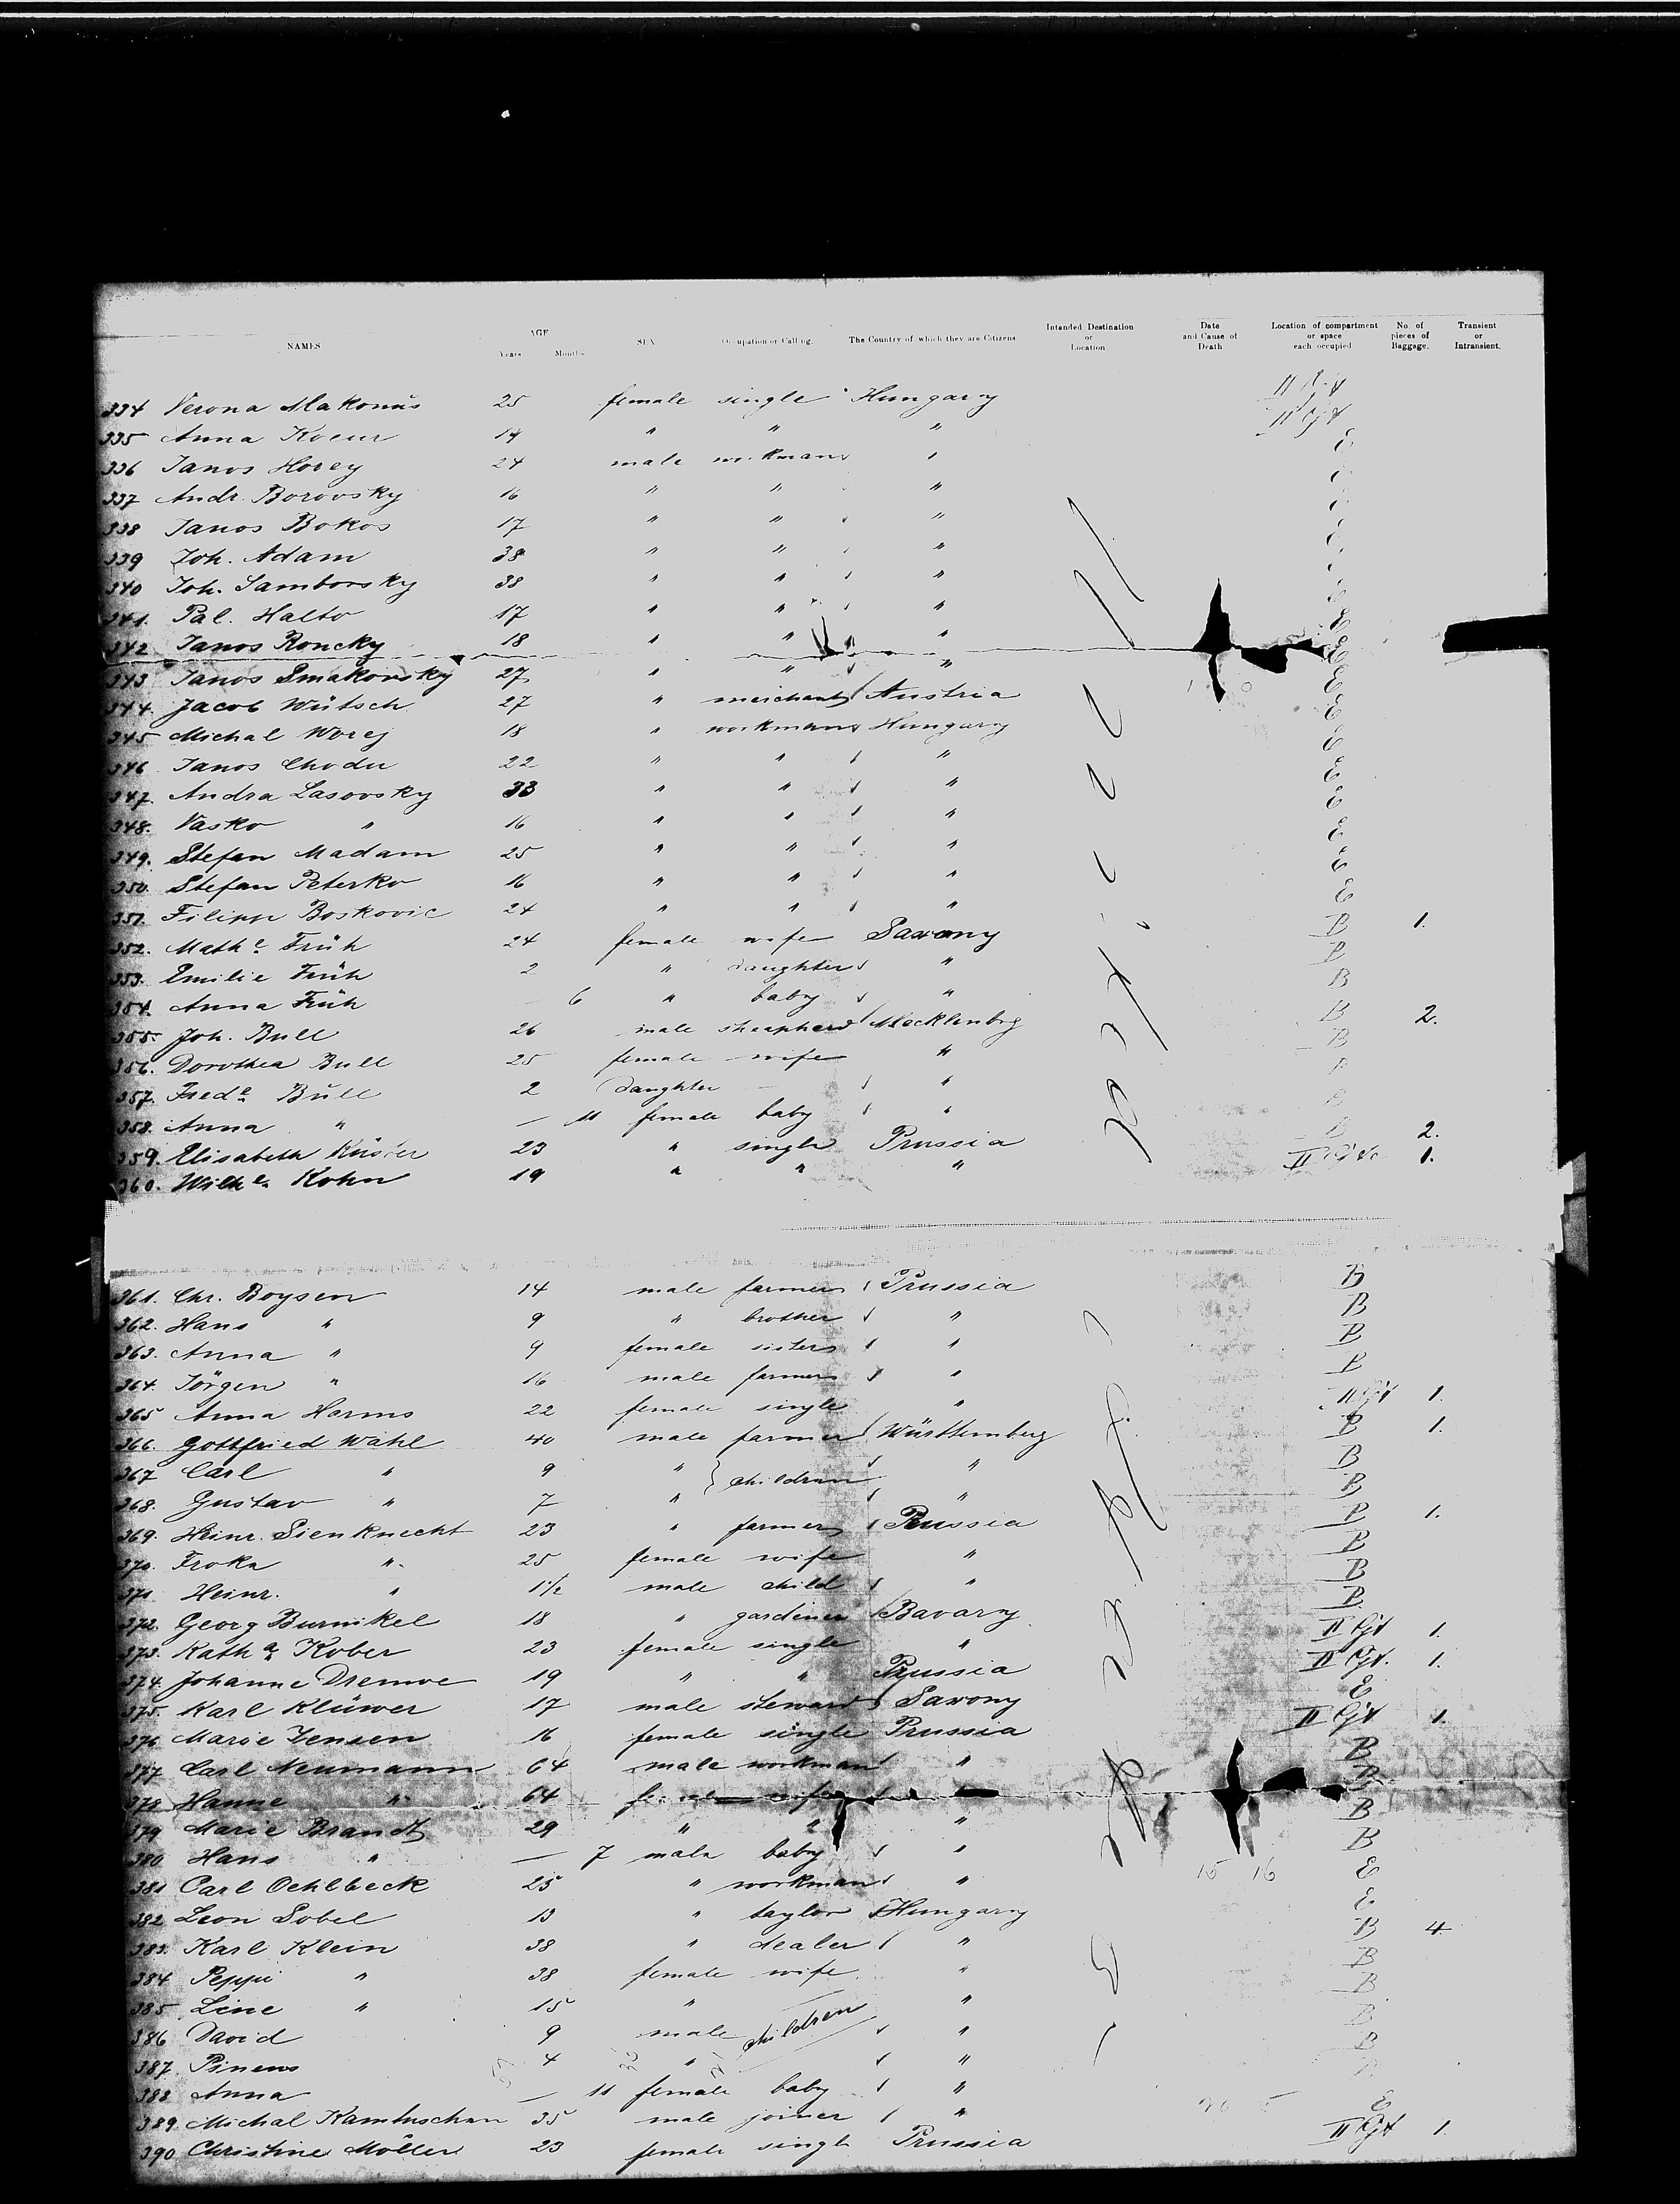 NAMES AGE Years Months SEX Occupation or Calling. The Country of which they are Citizens Intended Destination or Location Date and Cause of Death Location of compartment or space each occupied No. of pieces of Baggage. Transient or Intransient.
334 Verona Makonus 25 female single Hungary
335 Anna Kocur 19 " " "
336 Janos Horey 24 male workman " E
337 Andr. Borovsky 16 " " "
338 Janos Bokos 17 " " "
339 Joh. Adam 38 " " "
340 Joh. Samborsky 38 " " "
341. Pal. Halto 17 " " "
342 Janos Roncky 18 " " " E
343 Janos Smakovsky 27 " " " E
344. Jacob Wütsch 27 " merchant Austria E
345 Michal Worej 18 " workman Hungary E
346 Janos Chodu 22 " " " E
347. Andra Lasovsky 33 " " " E
348. Vasko " 16 " " " E
349. Stefan Madam 25 " " " E
350. Stefan Peterko 16 " " " E
351. Filipp Boskovic 24 " " " E
352. Mathe Früh 24 female wife Saxony B 1.
353. Emilie Früh 2 " daughter " B
354. Anna Früh — 6 " baby " B
355. Joh. Bull 26 male sheapherd Mecklenbrg B 2.
356. Dorothea Bull 25 female wife " B
357. Frede Bull 2 daughter — " B
358. Anna " — 11 female baby " B
359. Elisabeth Küster 23 " single Prussia B 2.
360. Wilhe Kohn 19 " " " II Cjt 1.
361. Chr. Boysen 14 male farmer Prussia B
362. Hans " 9 " brother " B
363. Anna " 9 female sister " B
364. Jörgen " 16 male farmer " B
365 Anna Harms 22 female single " II Cjt 1.
366. Gottfried Wahl 40 male farmer Württemberg B 1.
367 Carl " 9 " } children " B
368. Gustav " 7 " " B
369. Heinr. Sienknecht 23 " farmer Prussia B 1.
370. Froka " 25 female wife " B
371 Heinr. " 1 1/2 male child " B
372. Georg Burnikel 18 " gardener Bavary B
373. Katha Kober 23 female single " II Cjt 1.
374. Johanne Dremoe 19 " " Prussia II Cjt. 1.
375. Karl Klüwer 17 male steward Saxony E
376 Marie Jensen 16 female single Prussia II Cjt 1.
377 Carl Neumann 64 male workman " B
378 Hanne " 64 female wife B
379 Marie Brandt 29 " " " B
380 Hans " — 7 male baby " B
381 Carl Oehlbeck 25 " workman " 15 16 E
382 Leon Sobel 13 " taylor Hungary E
383. Karl Klein 38 " dealer " B 4
384 Peppi " 38 female wife " B
385 Line " 15 " " B
386 David 9 male children " B
387 Pineus 4 " " B
388 Anna — 11 female baby "
389. Michal Kamhuschan 35 male joiner " E
390 Christine Möller 23 female single Prussia II Cjt 1.